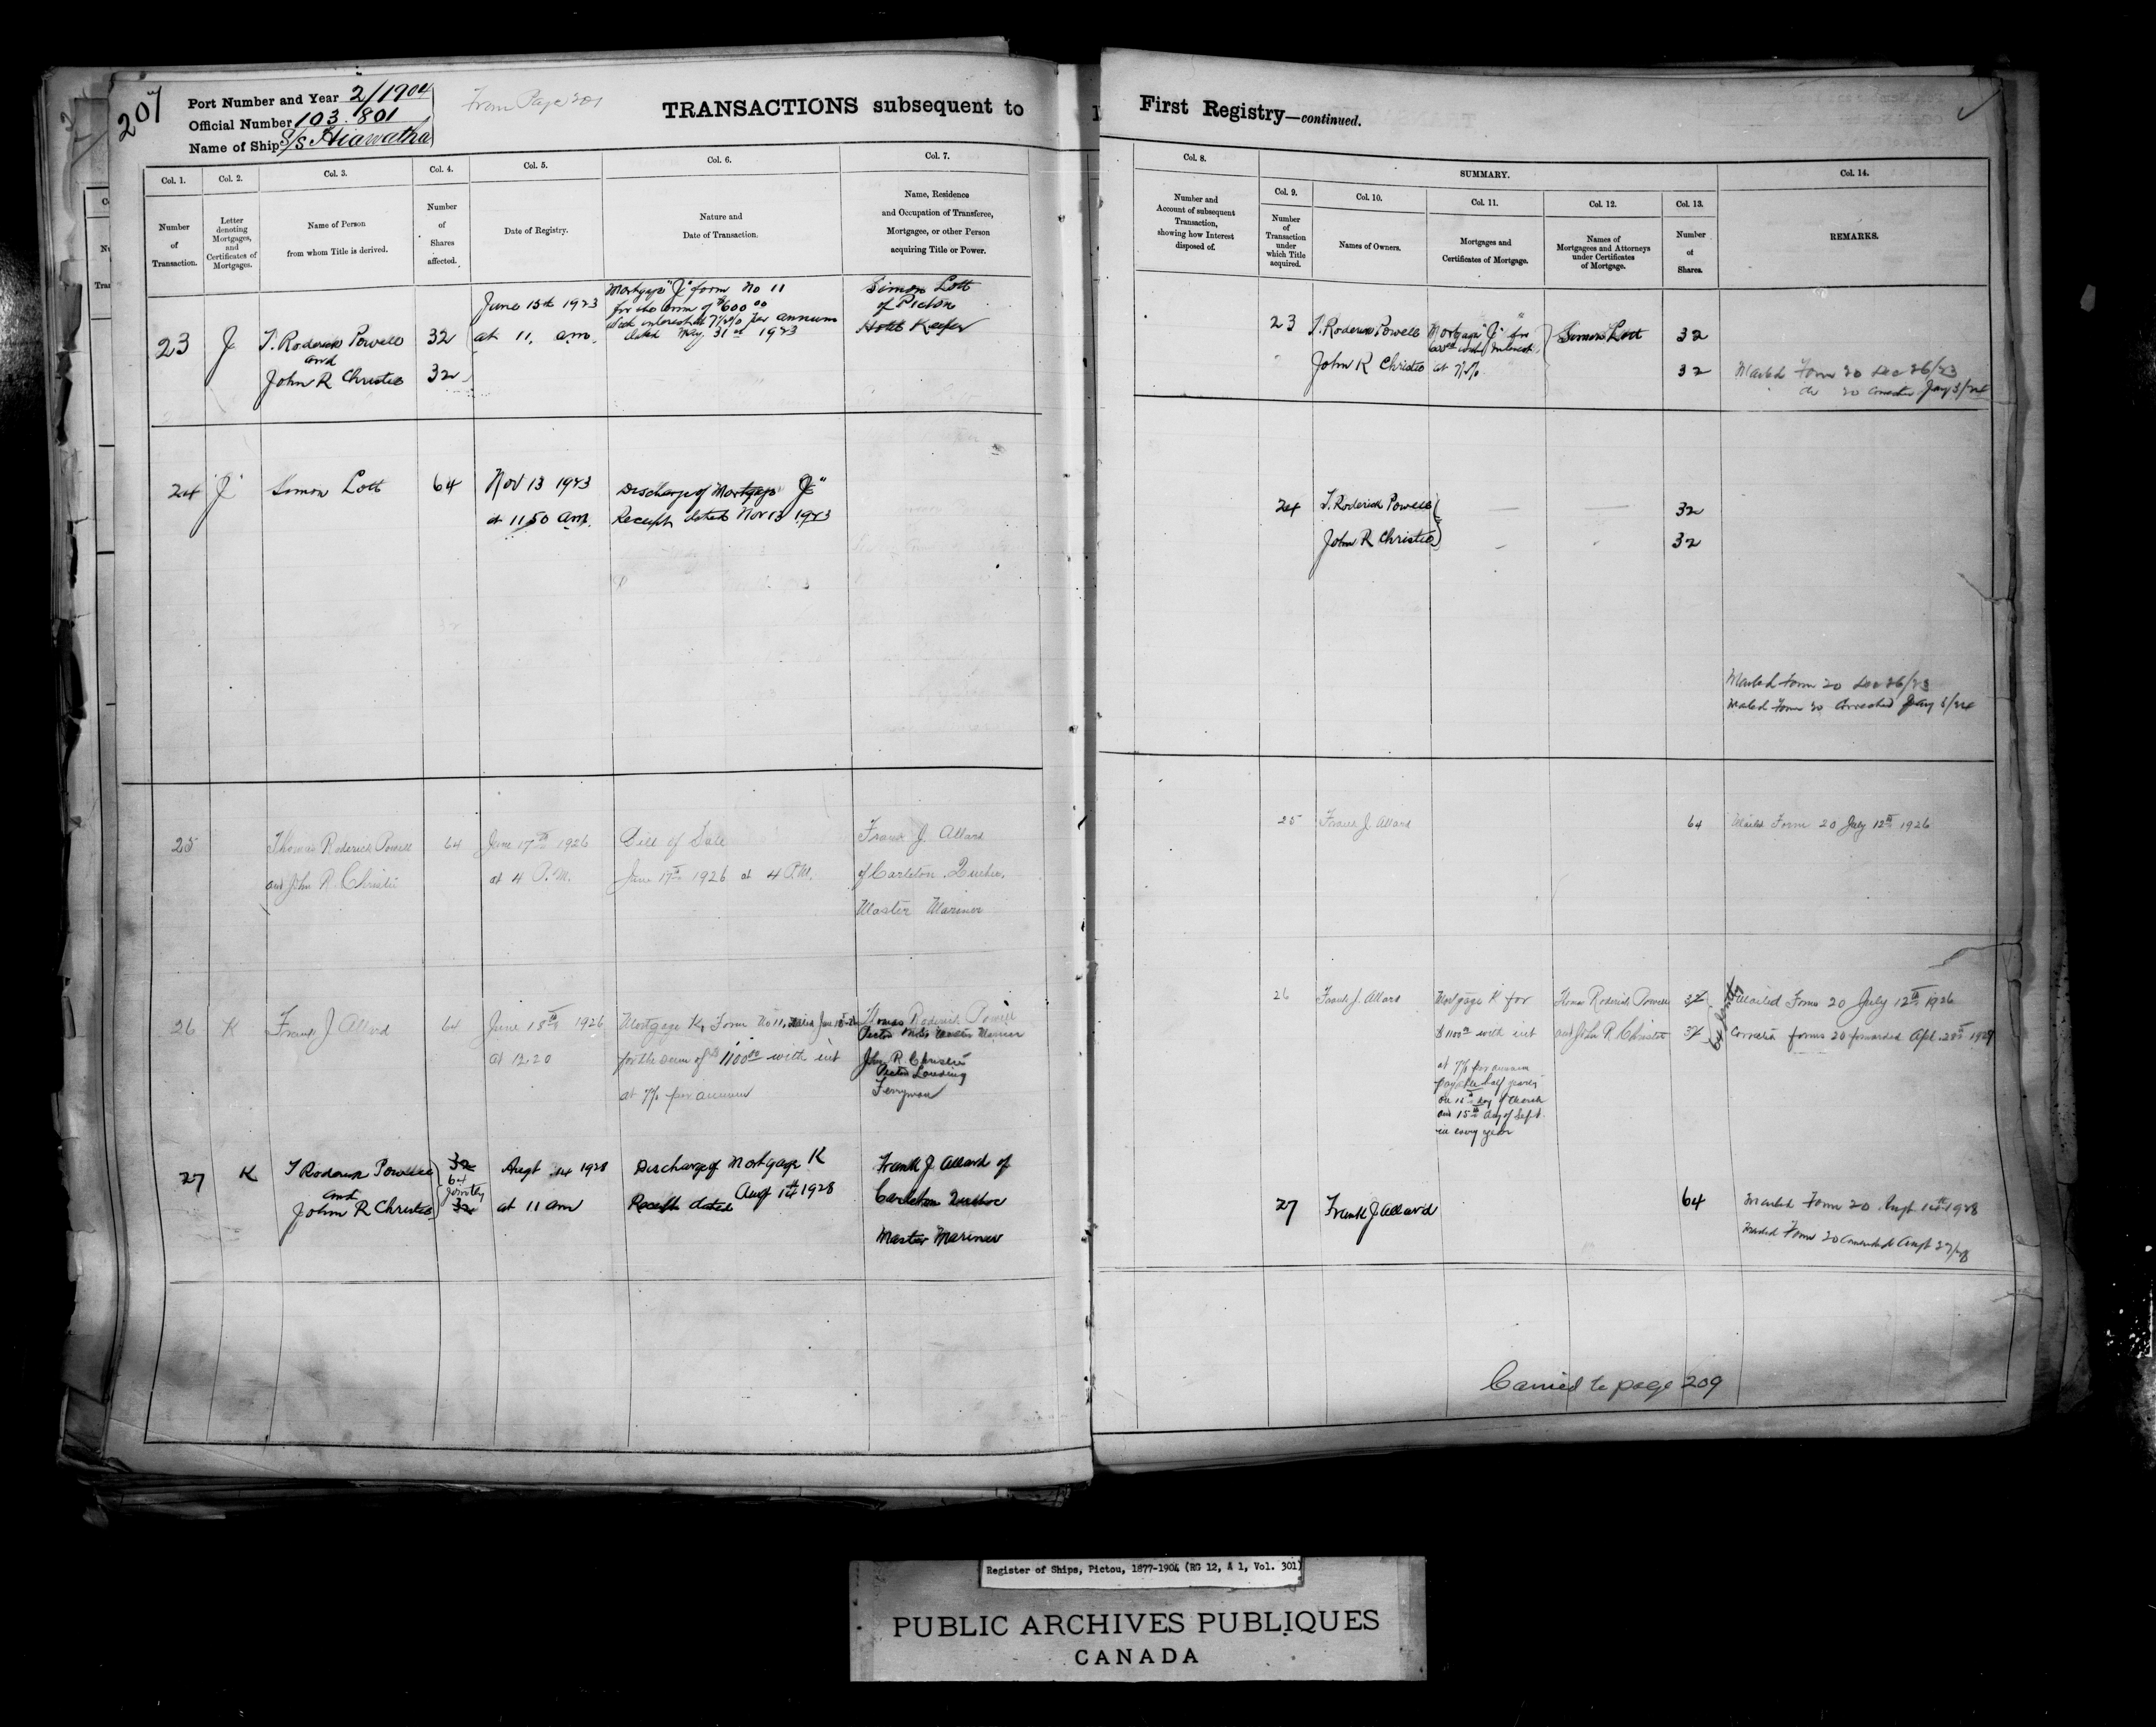 207
Port Number and Year 2/1904
Official Number 103.801
Name of Ship S/S Hiawatha
From Page 201
TRANSACTIONS subsequent to
Col. 1.
Number
of
Transaction.
Col. 2.
Letter
denoting
Mortgages,
and
Certificates of
Mortgages.
Col. 3.
Name of Person
from whom Title is derived.
Col. 4.
Number
of
Shares
affected.
Col. 5.
Date of Registry.
Col. 6.
Nature and
Date of Transaction.
Col. 7.
Name, Residence
and Occupation of Transferee,
Mortgagee, or other Person
acquiring Title or Power.
23
J
T. Roderick Powell
and
John R Christie
32
32
June 15th 1923
at 11. am.
Mortgage "J" form No 11
for the sum of $600 00
with interest at 7 % per annum
dated May 31st 1923
Simon Lott
of Pictou
Hotel Keeper
24
"J"
Simon Lott
64
Nov 13 1923
at 11 50 am.
Discharge of Mortgage "J"
Receipt dated Nov 13 1923
25
Thomas Roderick Powell
and John R. Christie
64
June 17th 1926
at 4 P.M.
Bill of Sale
June 17th 1926 at 4 P.M.
Frank J. Allard
of Carleton Quebec.
Master Mariner
26
K
Frank J Allard
64
June 18th 1926
at 12.20
Mortgage K, Form No 11, dated June
for the sum of $1100 00 with int
at 7% per annum
Thomas Roderick Powell
Pictou Master Mariner
John R. Christie
Pictou Landing
Ferryman
27
K
T Roderick Powell
and
John R Christie
32
64
jointly
32
Augt 14 1928
at 11 am
Discharge of Mortgage K
Receipt dated Augt 14th 1928
Frank J Allard of
Carleton Quebec
Master Mariner
First Registry—continued.
Col. 8.
Number and
Account of subsequent
Transaction,
showing how Interest
disposed of.
SUMMARY.
Col. 9.
Number
of
Transaction
under
which Title
acquired.
Col. 10.
Names of Owners.
Col. 11.
Mortgages and
Certificates of Mortgage.
Col. 12.
Names of
Mortgagees and Attorneys
under Certificates
of Mortgage.
Col. 13.
Number
of
Shares.
Col. 14.
REMARKS.
23
T. Roderick Powell
John R Christie
Mortgage "J" for
600 00 with Interest
at 7 %
Simon Lott
32
32
Mailed Form 20 Dec 26/23
do 20 corrected Jany 3/24
24
T. Roderick Powell
John R Christie
32
32
Mailed Form 20 Dec 26/23
Mailed Form 20 Corrected Jany 3/24
25
Frank J. Allard
64
Mailed Form 20 July 12th 1926
26
Frank J. Allard
Mortgage K for
$1100 00 with int
at 7% per annum
payable half yearly
on 15th day of March
and 15th day of Sept.
in every year
Thomas Roderick Powell
and John R. Christie
32
32
64 jointly
Mailed Form 20 July 12th 1926
Correct forms 20 forwarded Apl. 28th
27
Frank J Allard
64
Mailed Form 20 Augt 14th 1928
Mailed Form 20 Amended Augt 27/28
Carried to page 209
Register of Ships, Pictou, 1877-1904 (RG 12, A 1, Vol. 301)
PUBLIC ARCHIVES PUBLIQUES
CANADA